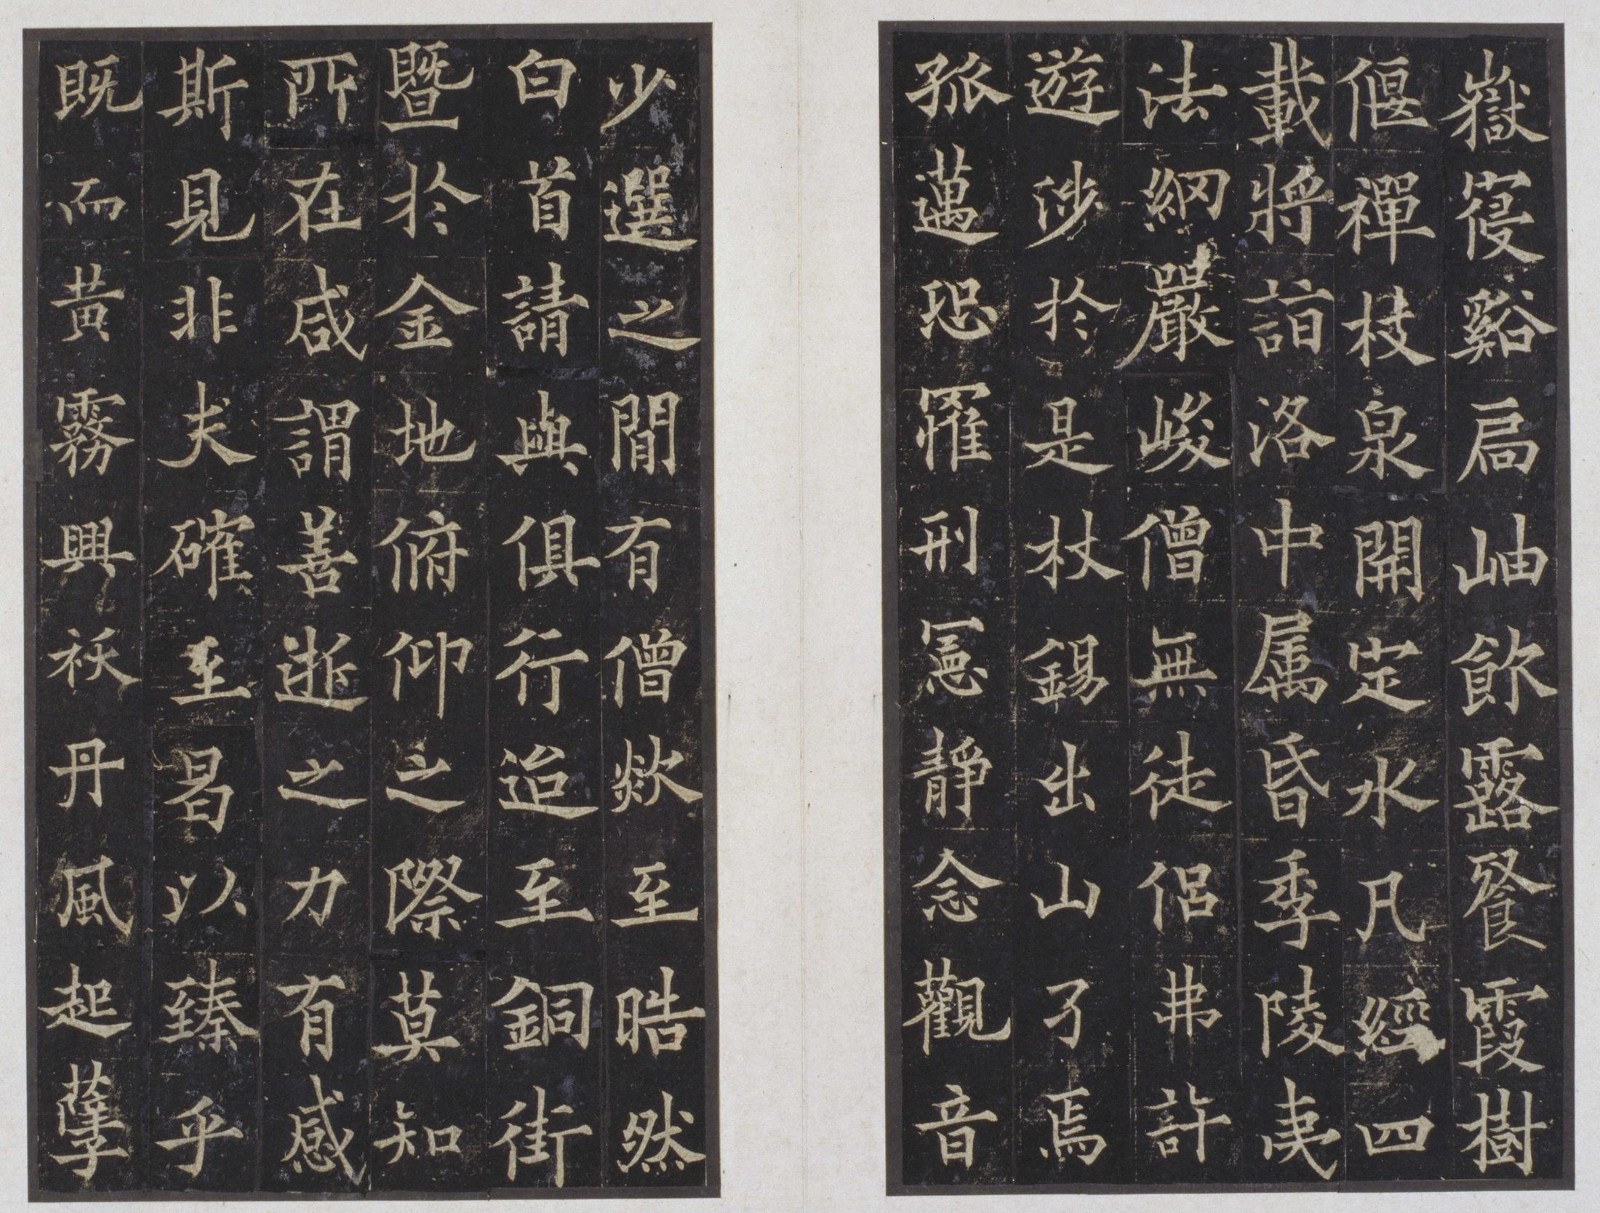 嶽寑谿扃岫飲露飡霞樹
偃禪枝泉開定水凡經四
載將詣洛中属昏季陵夷
法綱嚴峻僧無徒侶弗許
遊涉於是杖錫出山了焉
孤邁恐罹刑憲靜念觀音
少選之間有僧欻至晧然
白首請與俱行迨至銅街
暨於金地俯仰之際莫知
所在咸謂善逝之力有感
斯見非夫確至曷以臻乎
既而黃霧興祅丹風起孽